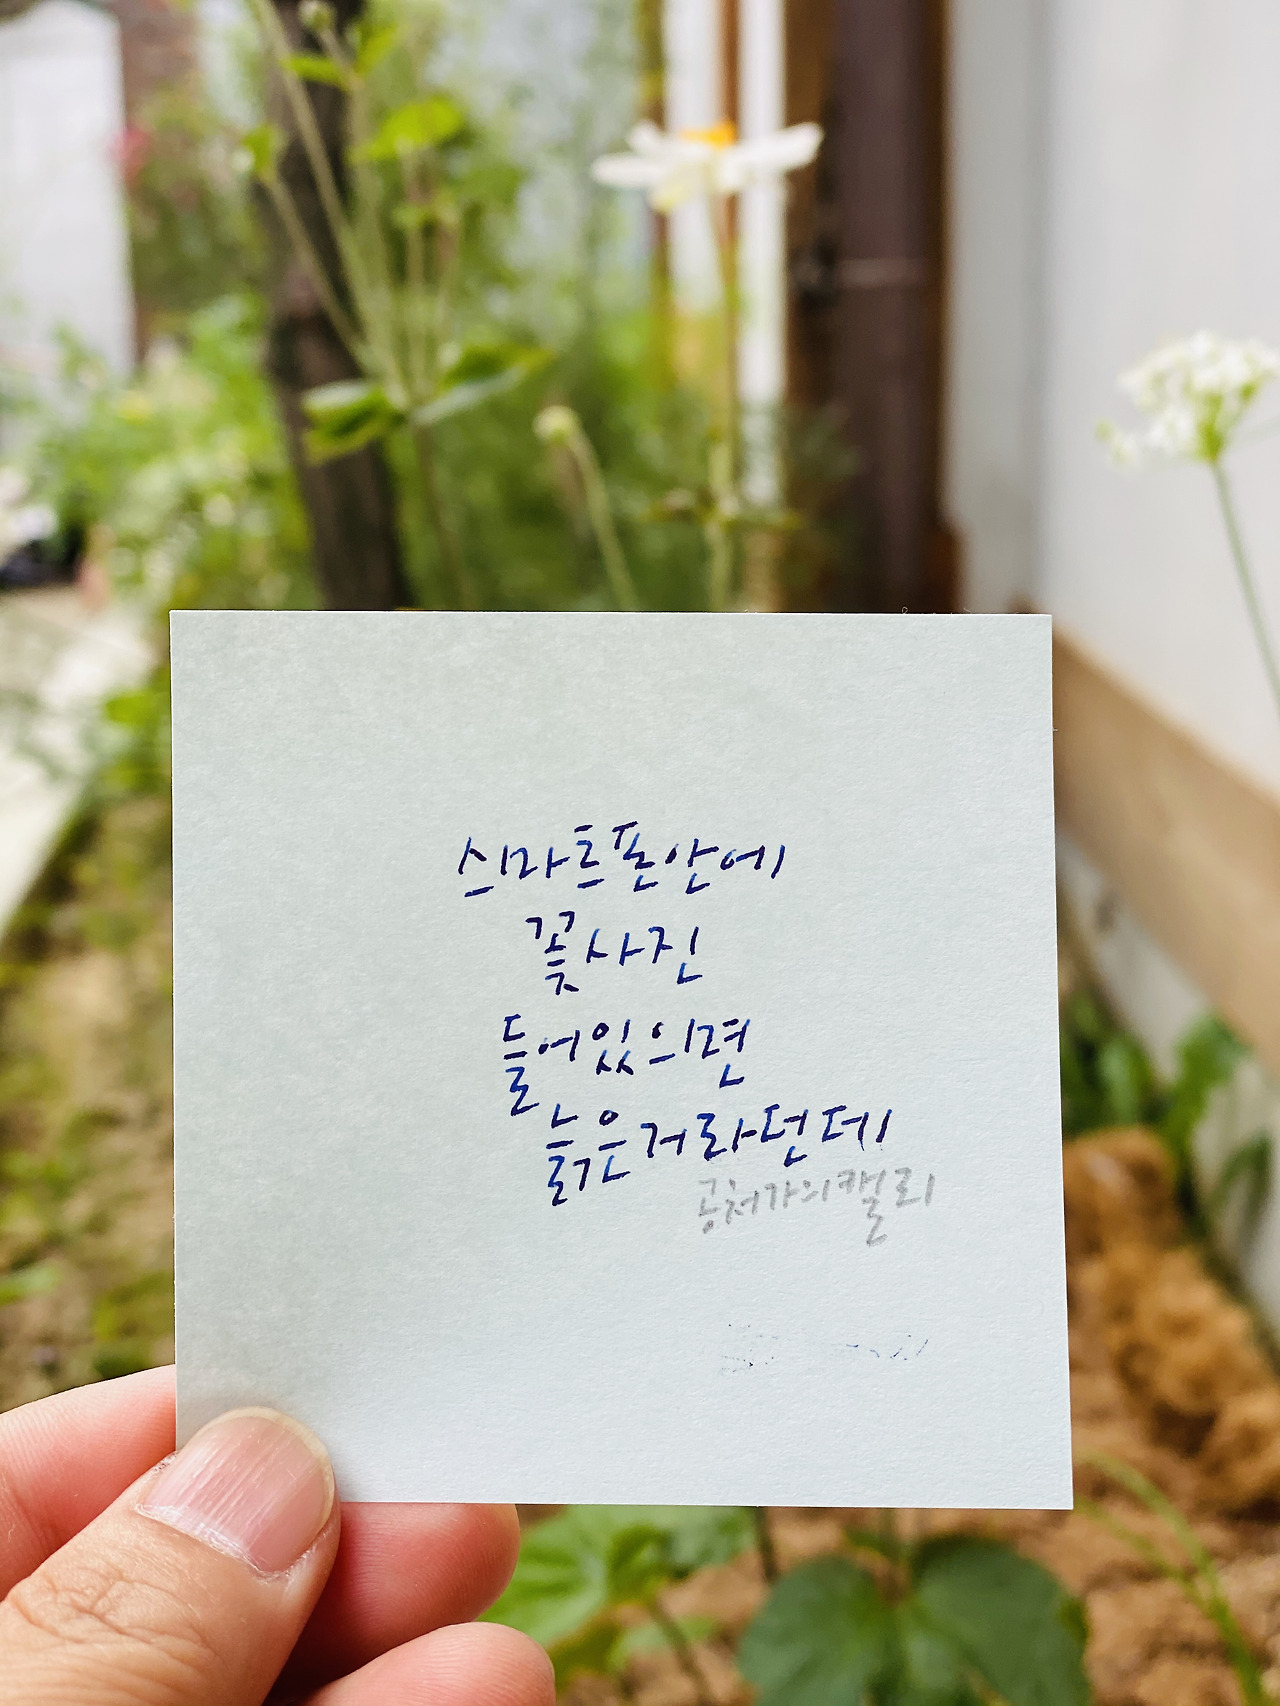 스마트폰안에
꽃사진
들어있으면
늙은거라던데
공처가의캘리